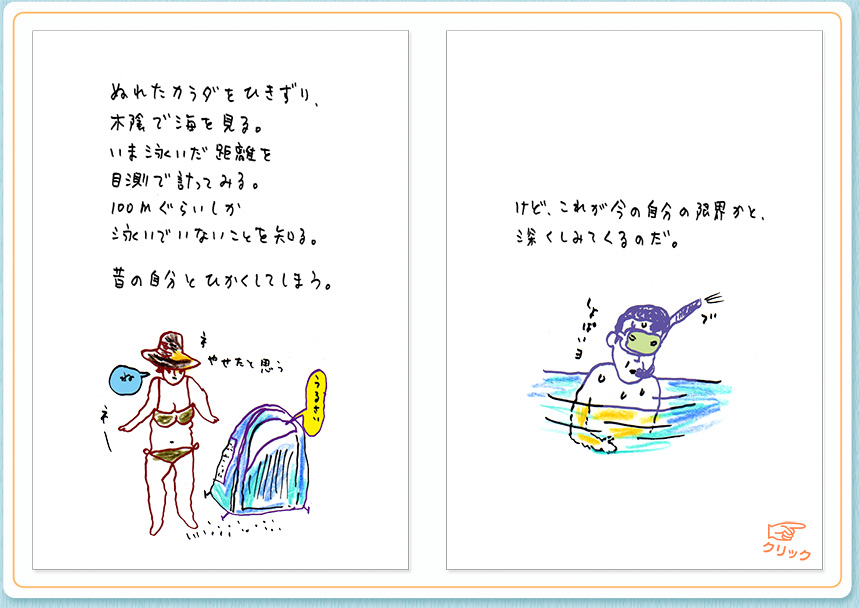 ぬれたカラダをひきずり、
木陰で海を見る。
いま泳いだ距離を
目測で計ってみる。
100Mぐらいしか
泳いでいないことを知る。
昔の自分とひかくしてしまう。
ネ
やせたと思う
ね
ネー
うるさい
けど、これが今の自分の限界かと、
深くしみてくるのだ。
しょっぱいヨ
ブ
クリック